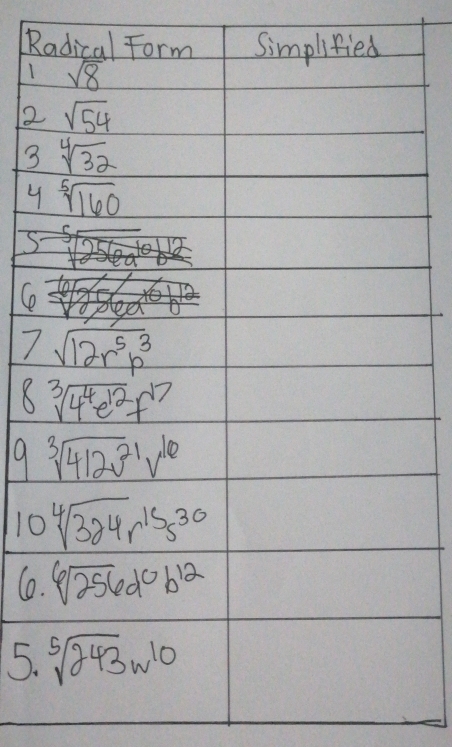 Radical Form Simplified
1 √8
2 √54
3 ∜32
4 ⁵√160
5 ⁵√256a¹⁰b¹²
6 ⁶√256a¹⁰b¹²
7 √12r⁵p³
8 ³√4⁴e¹²f¹⁷
9 ³√412v²¹v¹⁶
10 ∜324r¹⁵s³⁰
6. ⁶√256a¹⁰b¹²
5. ⁵√243w¹⁰